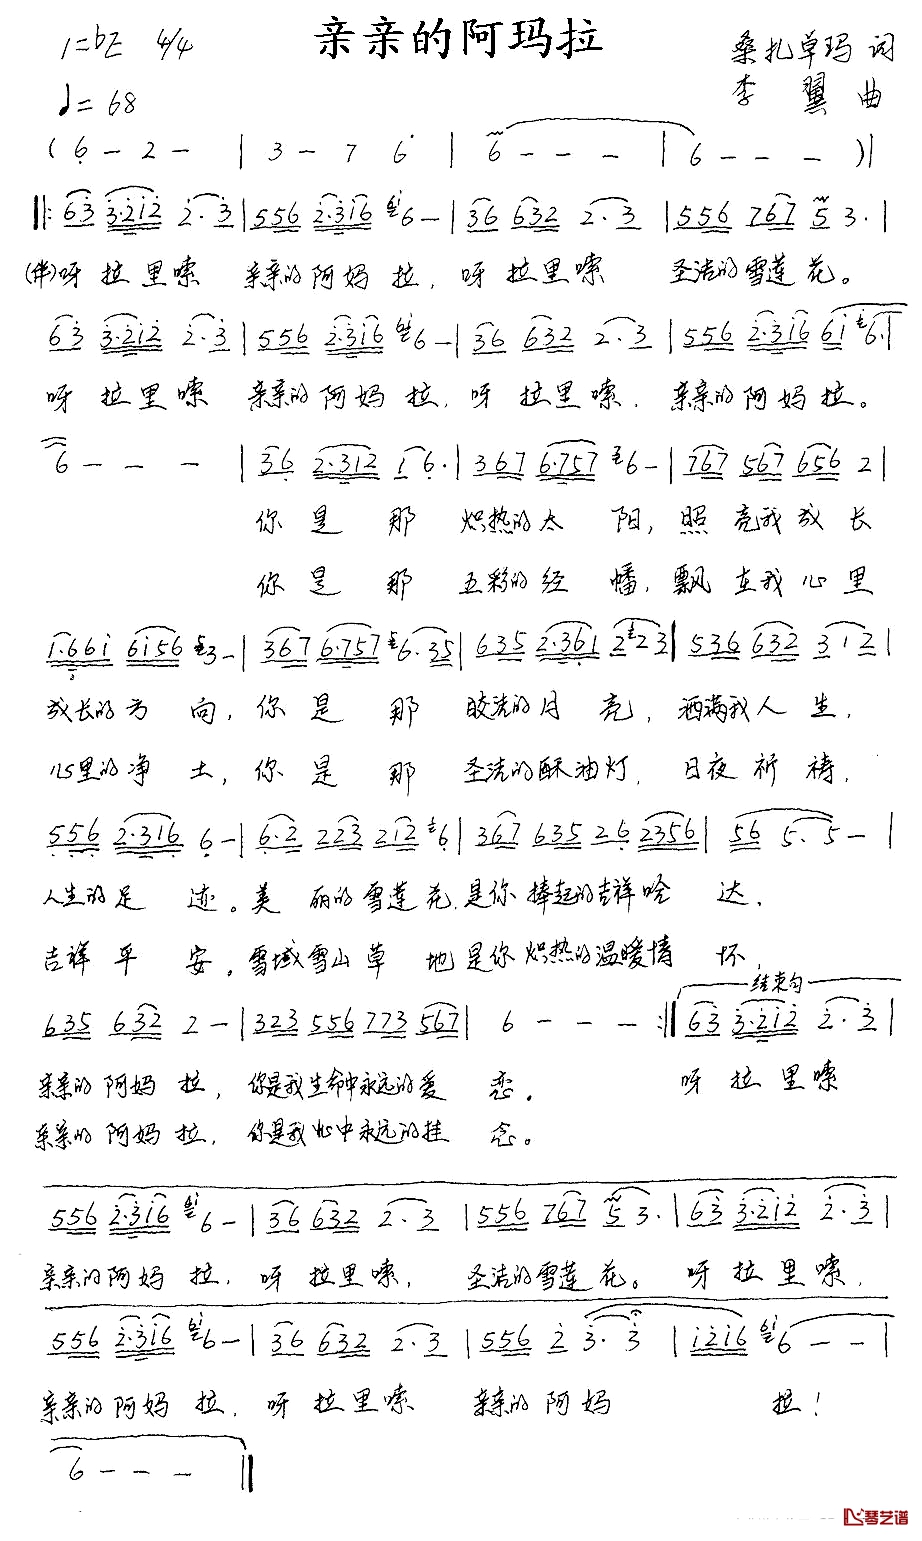 亲亲的阿玛拉
1=bE 4/4
桑扎草玛 词
李翼 曲
♩=68
( 6 - 2 - | 3 - 7 6 | 6 - - - | 6 - - - )|
‖: 63 3·212 2·3 | 556 2·316 6 - | 36 632 2·3 | 556 767 5 3· |
(伴)呀拉里嗦 亲亲的阿妈拉, 呀拉里嗦 圣洁的雪莲花。
63 3·212 2·3 | 556 2·316 6 - | 36 632 2·3 | 556 2·316 61 6· |
呀拉里嗦 亲亲的阿妈拉, 呀拉里嗦, 亲亲的阿妈拉。
6 - - - | 36 2·312 1 6· | 367 6·757 6 - | 767 567 656 2 |
你是那 炽热的太阳, 照亮我成长
你是那 五彩的经幡, 飘在我心里
1·661 6156 3 - | 367 6·757 6·35 | 635 2·361 2 23 | 536 632 312 |
成长的方向, 你是那 皎洁的月亮, 洒满我人生,
心里的净土, 你是那 圣洁的酥油灯, 日夜祈祷,
556 2·316 6 - | 6·2 223 212 6 | 367 635 26 2356 | 56 5·5 - |
人生的足迹。美丽的雪莲花, 是你捧起的吉祥哈达,
吉祥平安。雪域雪山草地是你炽热的温暖情怀,
结束句
635 632 2 - | 323 556 773 567 | 6 - - - :‖ 63 3·212 2·3 |
亲亲的阿妈拉, 你是我生命中永远的爱恋。 呀拉里嗦
亲亲的阿妈拉, 你是我心中永远的挂念。
556 2·316 6 - | 36 632 2·3 | 556 767 5 3· | 63 3·212 2·3 |
亲亲的阿妈拉, 呀拉里嗦, 圣洁的雪莲花。 呀拉里嗦,
556 2·316 6 - | 36 632 2·3 | 556 2 3·3 | 1216 6 - - |
亲亲的阿妈拉, 呀拉里嗦 亲亲的阿妈 拉!
6 - - - ‖
琴艺谱